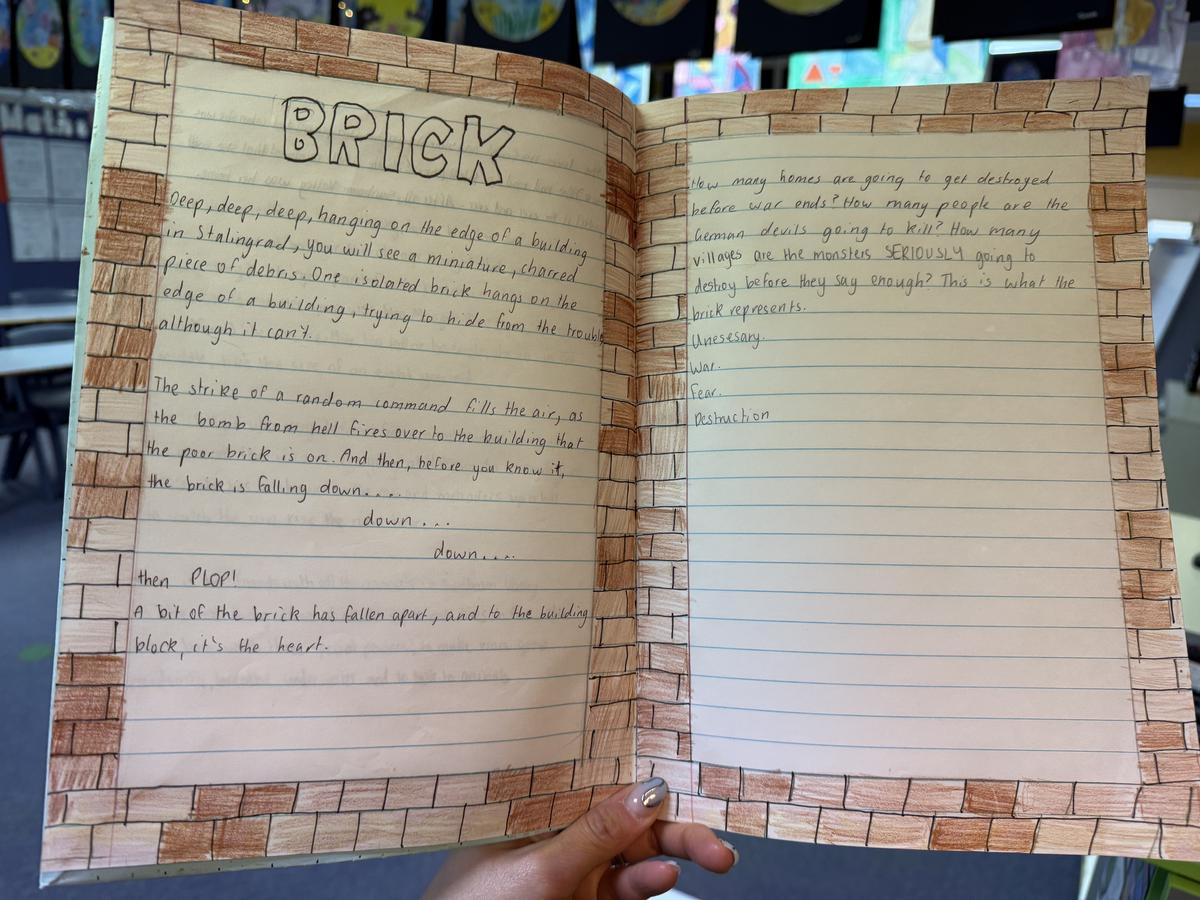 Maths
BRICK
Deep, deep, deep, hanging on the edge of a building
in Stalingrad, you will see a miniature, charred
piece of debris. One isolated brick hangs on the
edge of a building, trying to hide from the trouble
although it can't.
The strike of a random command fills the air, as
the bomb from hell fires over to the building that
the poor brick is on. And then, before you know it,
the brick is falling down....
down...
down....
then PLOP!
A bit of the brick has fallen apart, and to the building
block, it's the heart.
How many homes are going to get destroyed
before war ends? How many people are the
German devils going to kill? How many
villages are the monsters SERIOUSLY going to
destroy before they say enough? This is what the
brick represents.
Unesesary.
War.
Fear.
Destruction